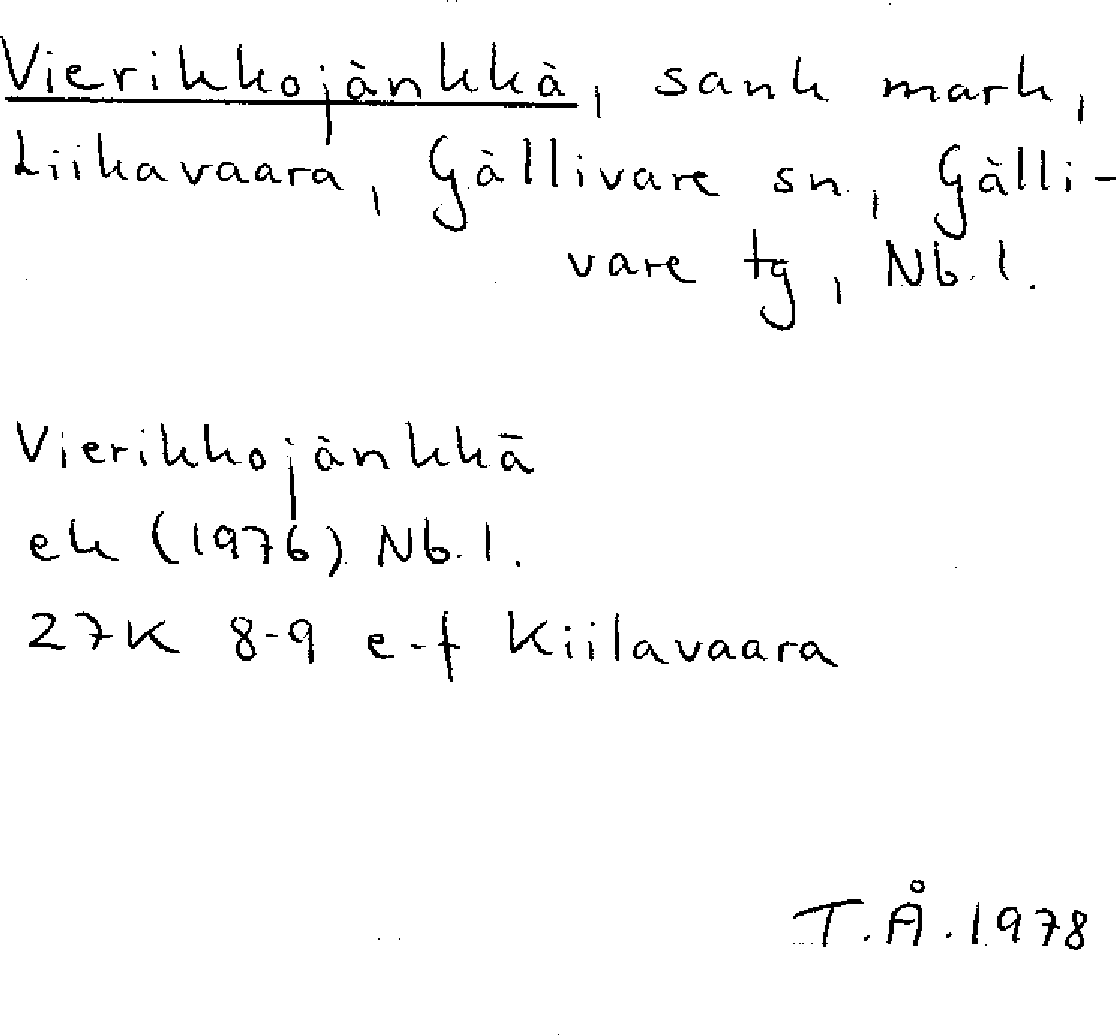 Vierikkojänkkä, sank mark,
Liikavaara, Gällivare sn, Gälli-
vare tg, Nb.l.
Vierikkojänkkä
ek (1976) Nb.l.
27K 8-9 e-f Kiilavaara
T.Å.1978